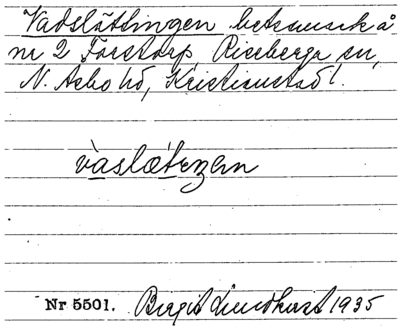 Vadslättingen betesmark å
nr 2 Förstorp, Riseberga sn,
N. Åsbo hd, Kristianstad l.
vaslætıŋən
Nr 5501. Birgit Lindkvist 1935